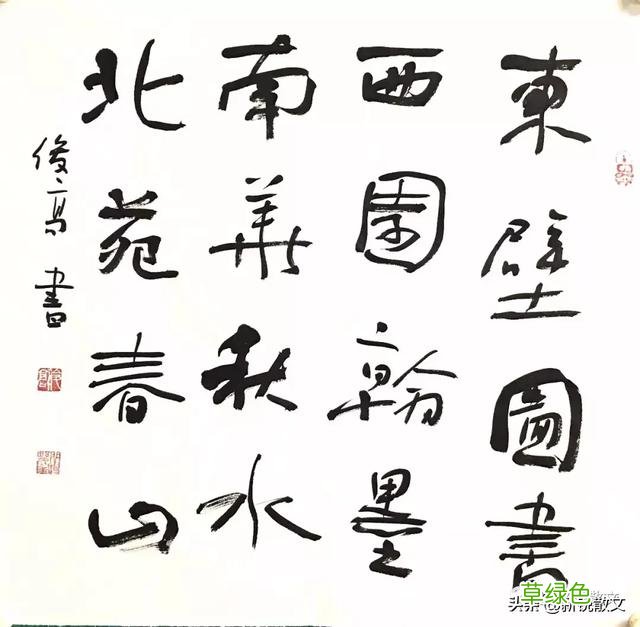 東壁圖書
西園翰墨
南華秋水
北苑春山
俊高書
草绿色
头条 散文